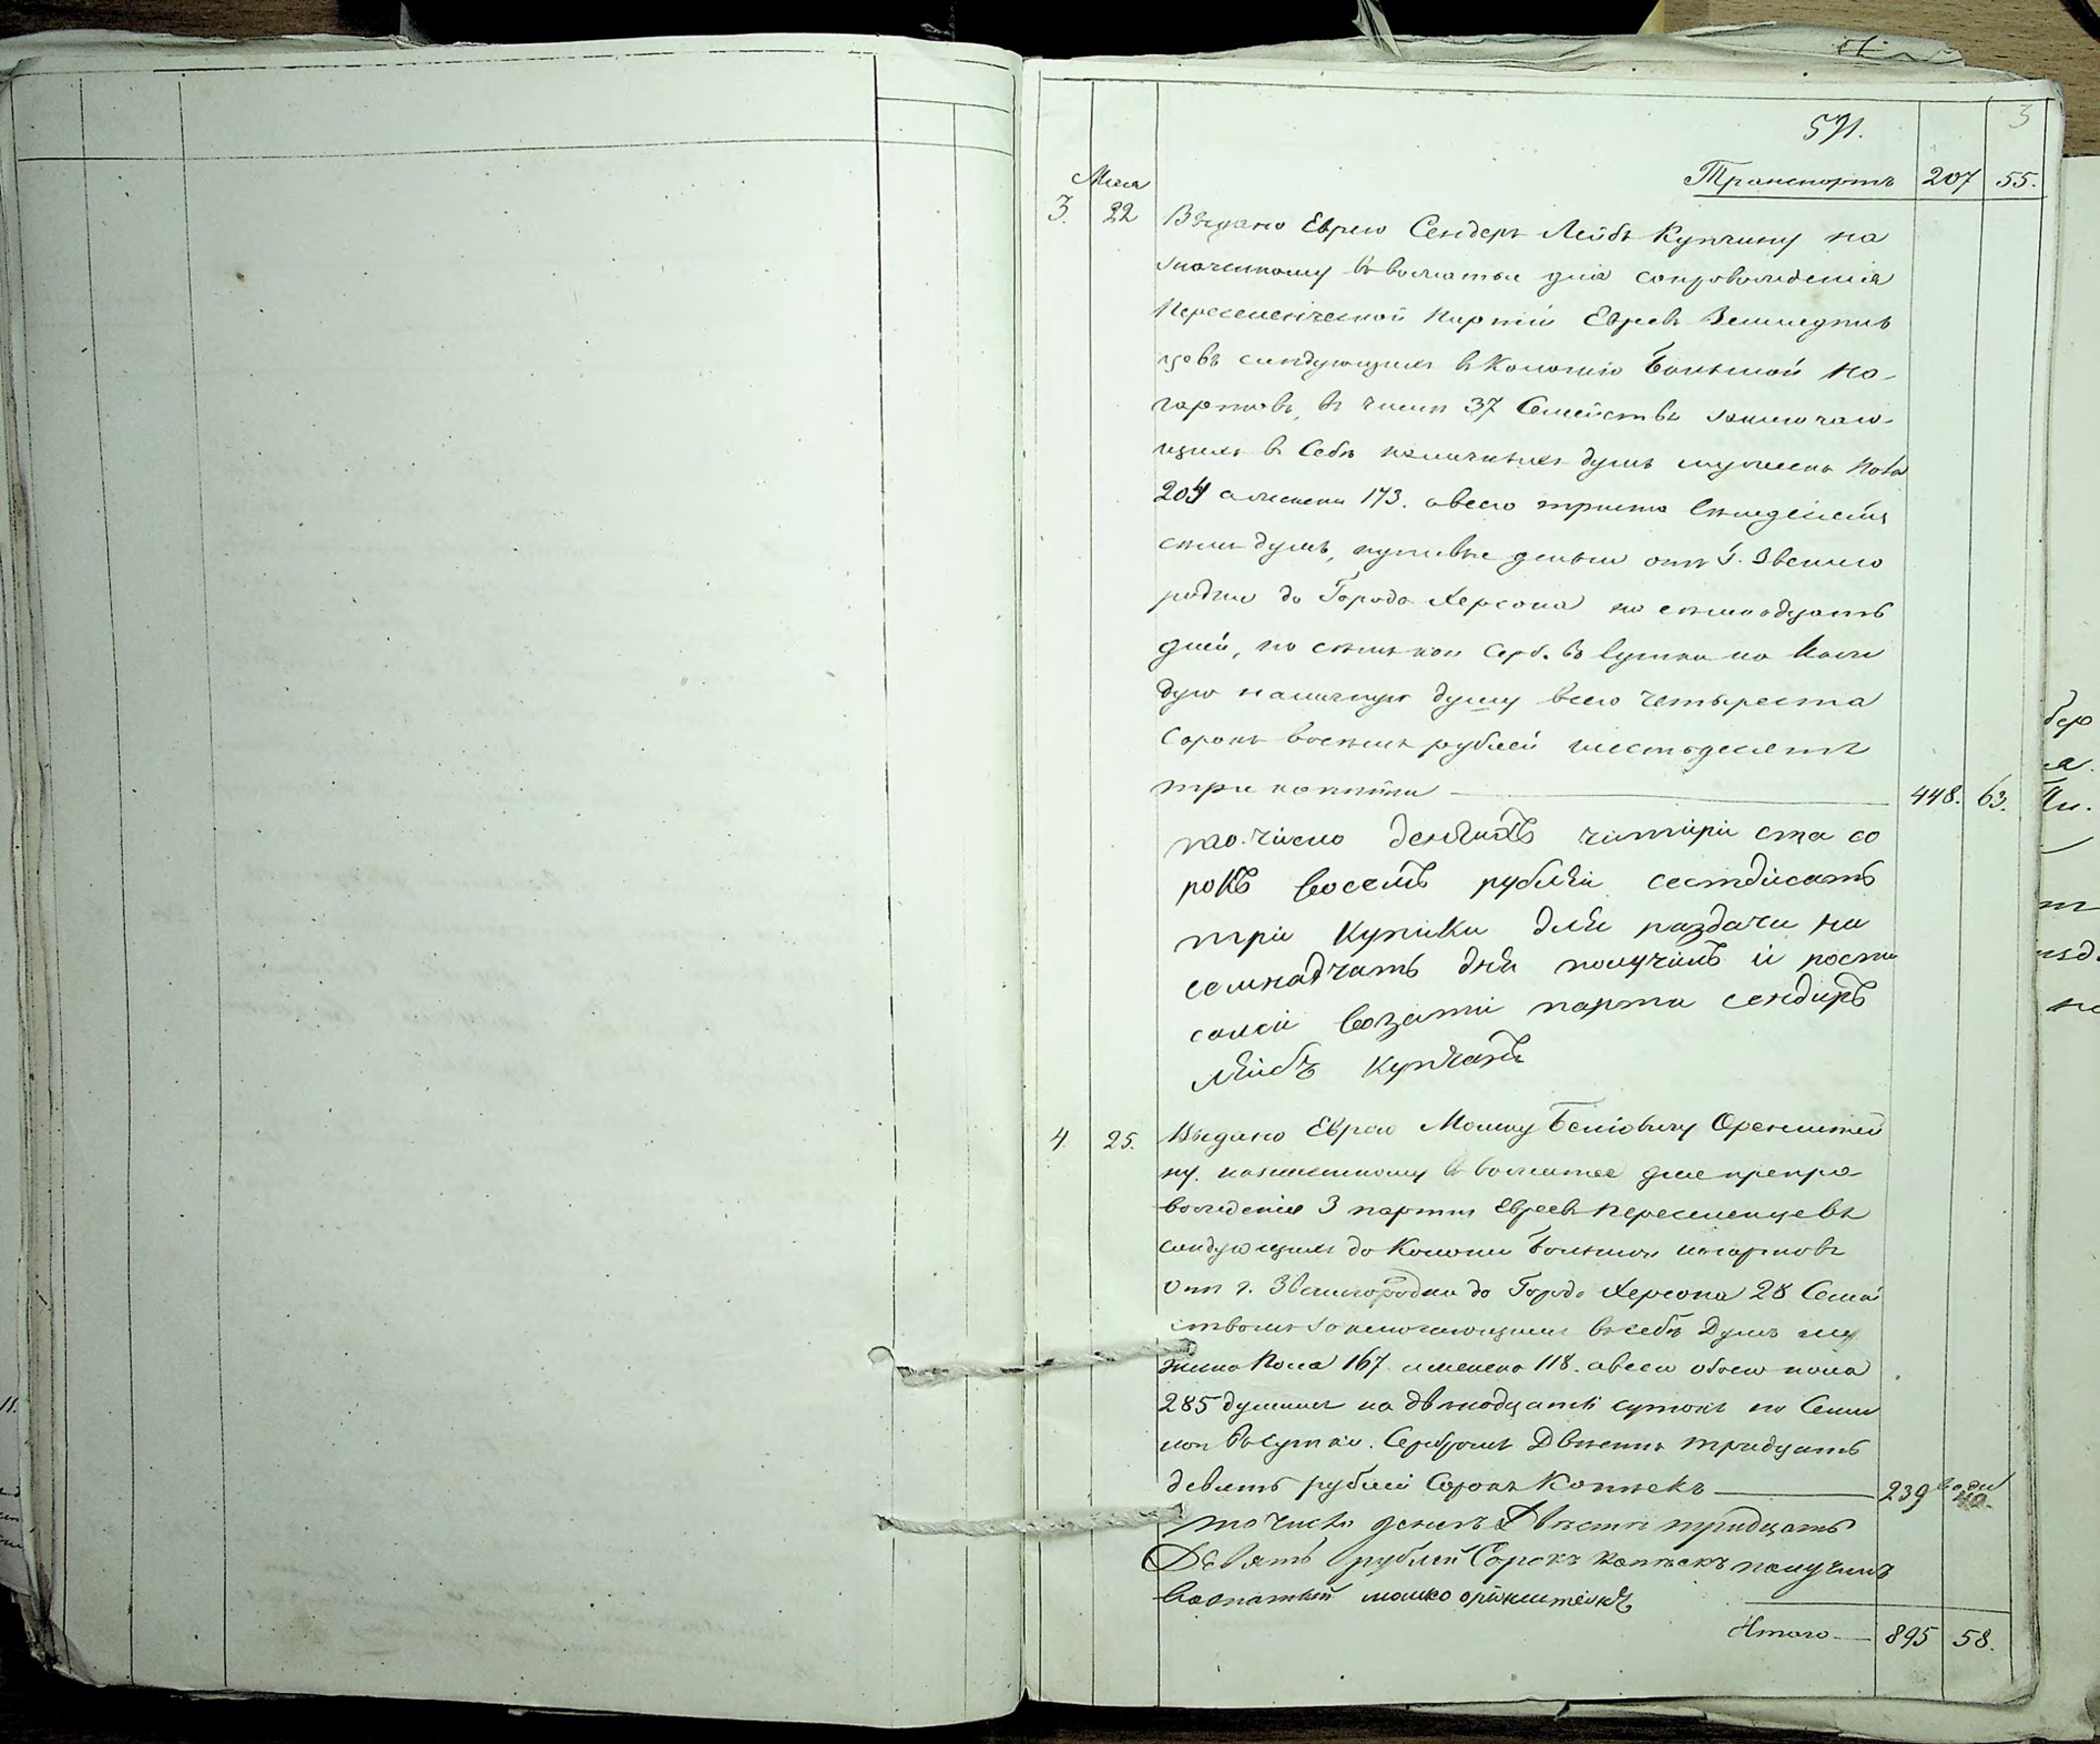 591.
3
Транспортъ 207 55.
Мая
3. 22 Выдано Еврею Сендеръ Лейбѣ Купчину на
значенному въ вожатые для сопровожденія
Переселенческой партіи Евреевъ Земледѣль
цовъ слѣдующихъ въ Колонію Большой На-
гартовъ, въ числѣ 37 Семействъ заключаю-
щихъ въ Себѣ наличныхъ душъ мужеска пола
204 а женска 173. а всего триста семьдесятъ
семь душъ, путевые деньги отъ Г. Звениго
родки до Города Херсона на семнадцать
дней, по семь коп. Сер. въ сутки на каж
дую наличную душу всего четыреста
сорокъ восемь рублей шестьдесятъ
три копѣйки 448. 63.
то число денгихъ читири ста со
рокъ восемъ рублей сестдисатъ
три купики для раздачи на
семнадчатъ дня получилъ и
возати парти сендиръ
лейбъ купчанъ
4. 25. Выдано Еврею Мошку Оренштей
ну. назначенному въ вожатые для препро
вожденія 3 партіи Евреевъ переселенцевъ
слѣдующихъ до Колоніи Большой нагартовъ
отъ г. Звенигородки до Города Херсона 28 Семей
ствомъ заключающимъ въ себѣ Душъ му
жеска Пола 167 и женска 118. а всего обоего пола
285 душамъ на двѣнадцать сутокъ по Семи
коп въ сутки. Серебромъ Двѣсти тридцать
девять рублей Сорокъ Копѣекъ 239 40.
то число денегъ Двѣсти тридцать
Девять рублей Сорокъ копѣекъ получилъ
мошко
Итого 895 58.